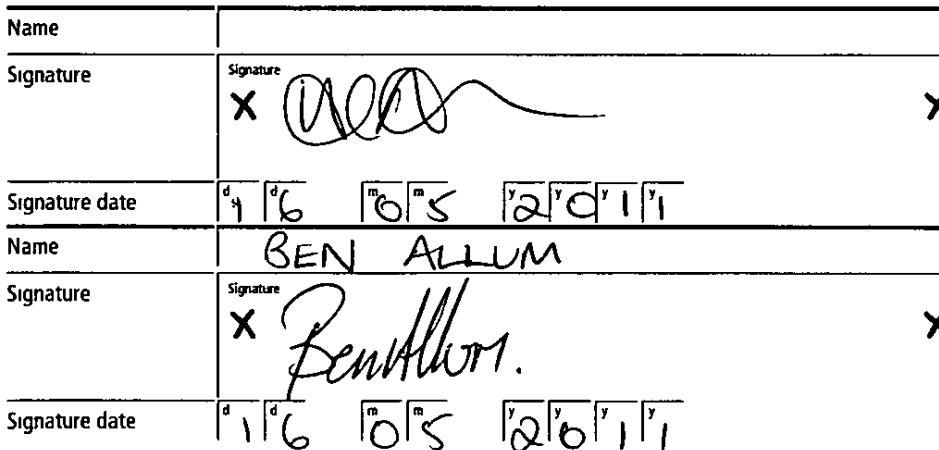 Name
Signature
Signature
X X
Signature date d 1 d 6 m 0 m 5 y 2 y 0 y 1 y 1
Name BEN ALLUM
Signature
Signature
X Ben Allum. X
Signature date d 1 d 6 m 0 m 5 y 2 y 0 y 1 y 1